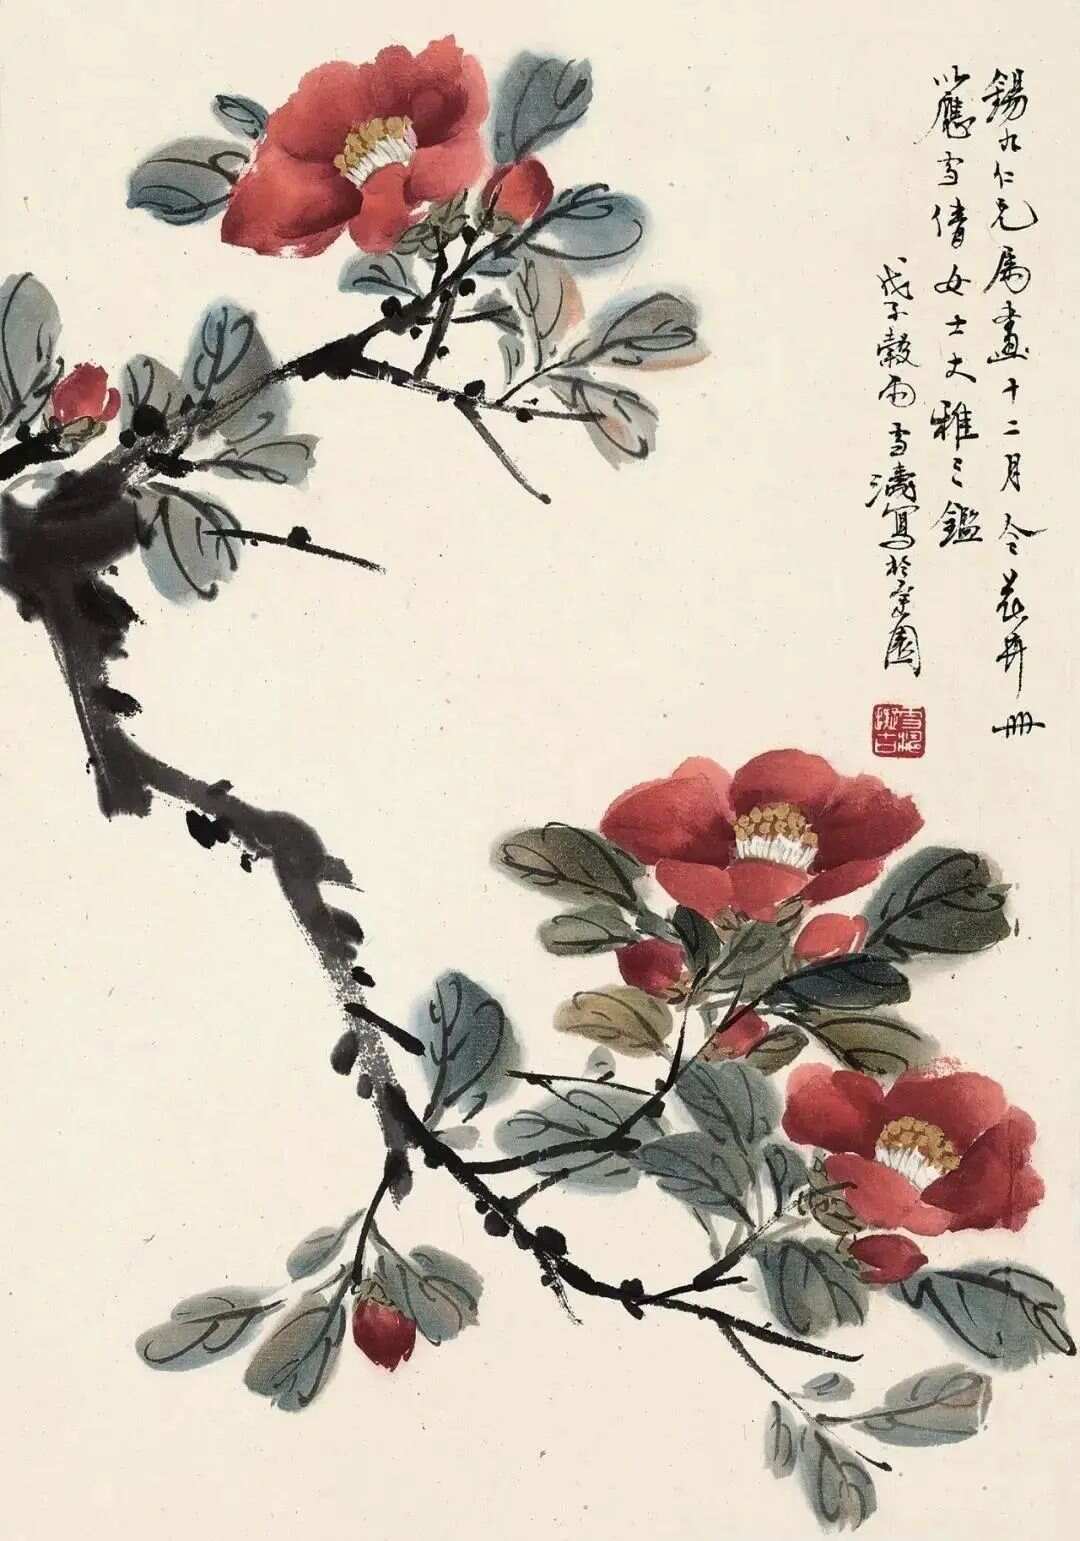 錫九仁兄屬畫十二月令花卉冊
以應雪倩女士大雅之鑑
戊子穀雨雪濤寫於

園